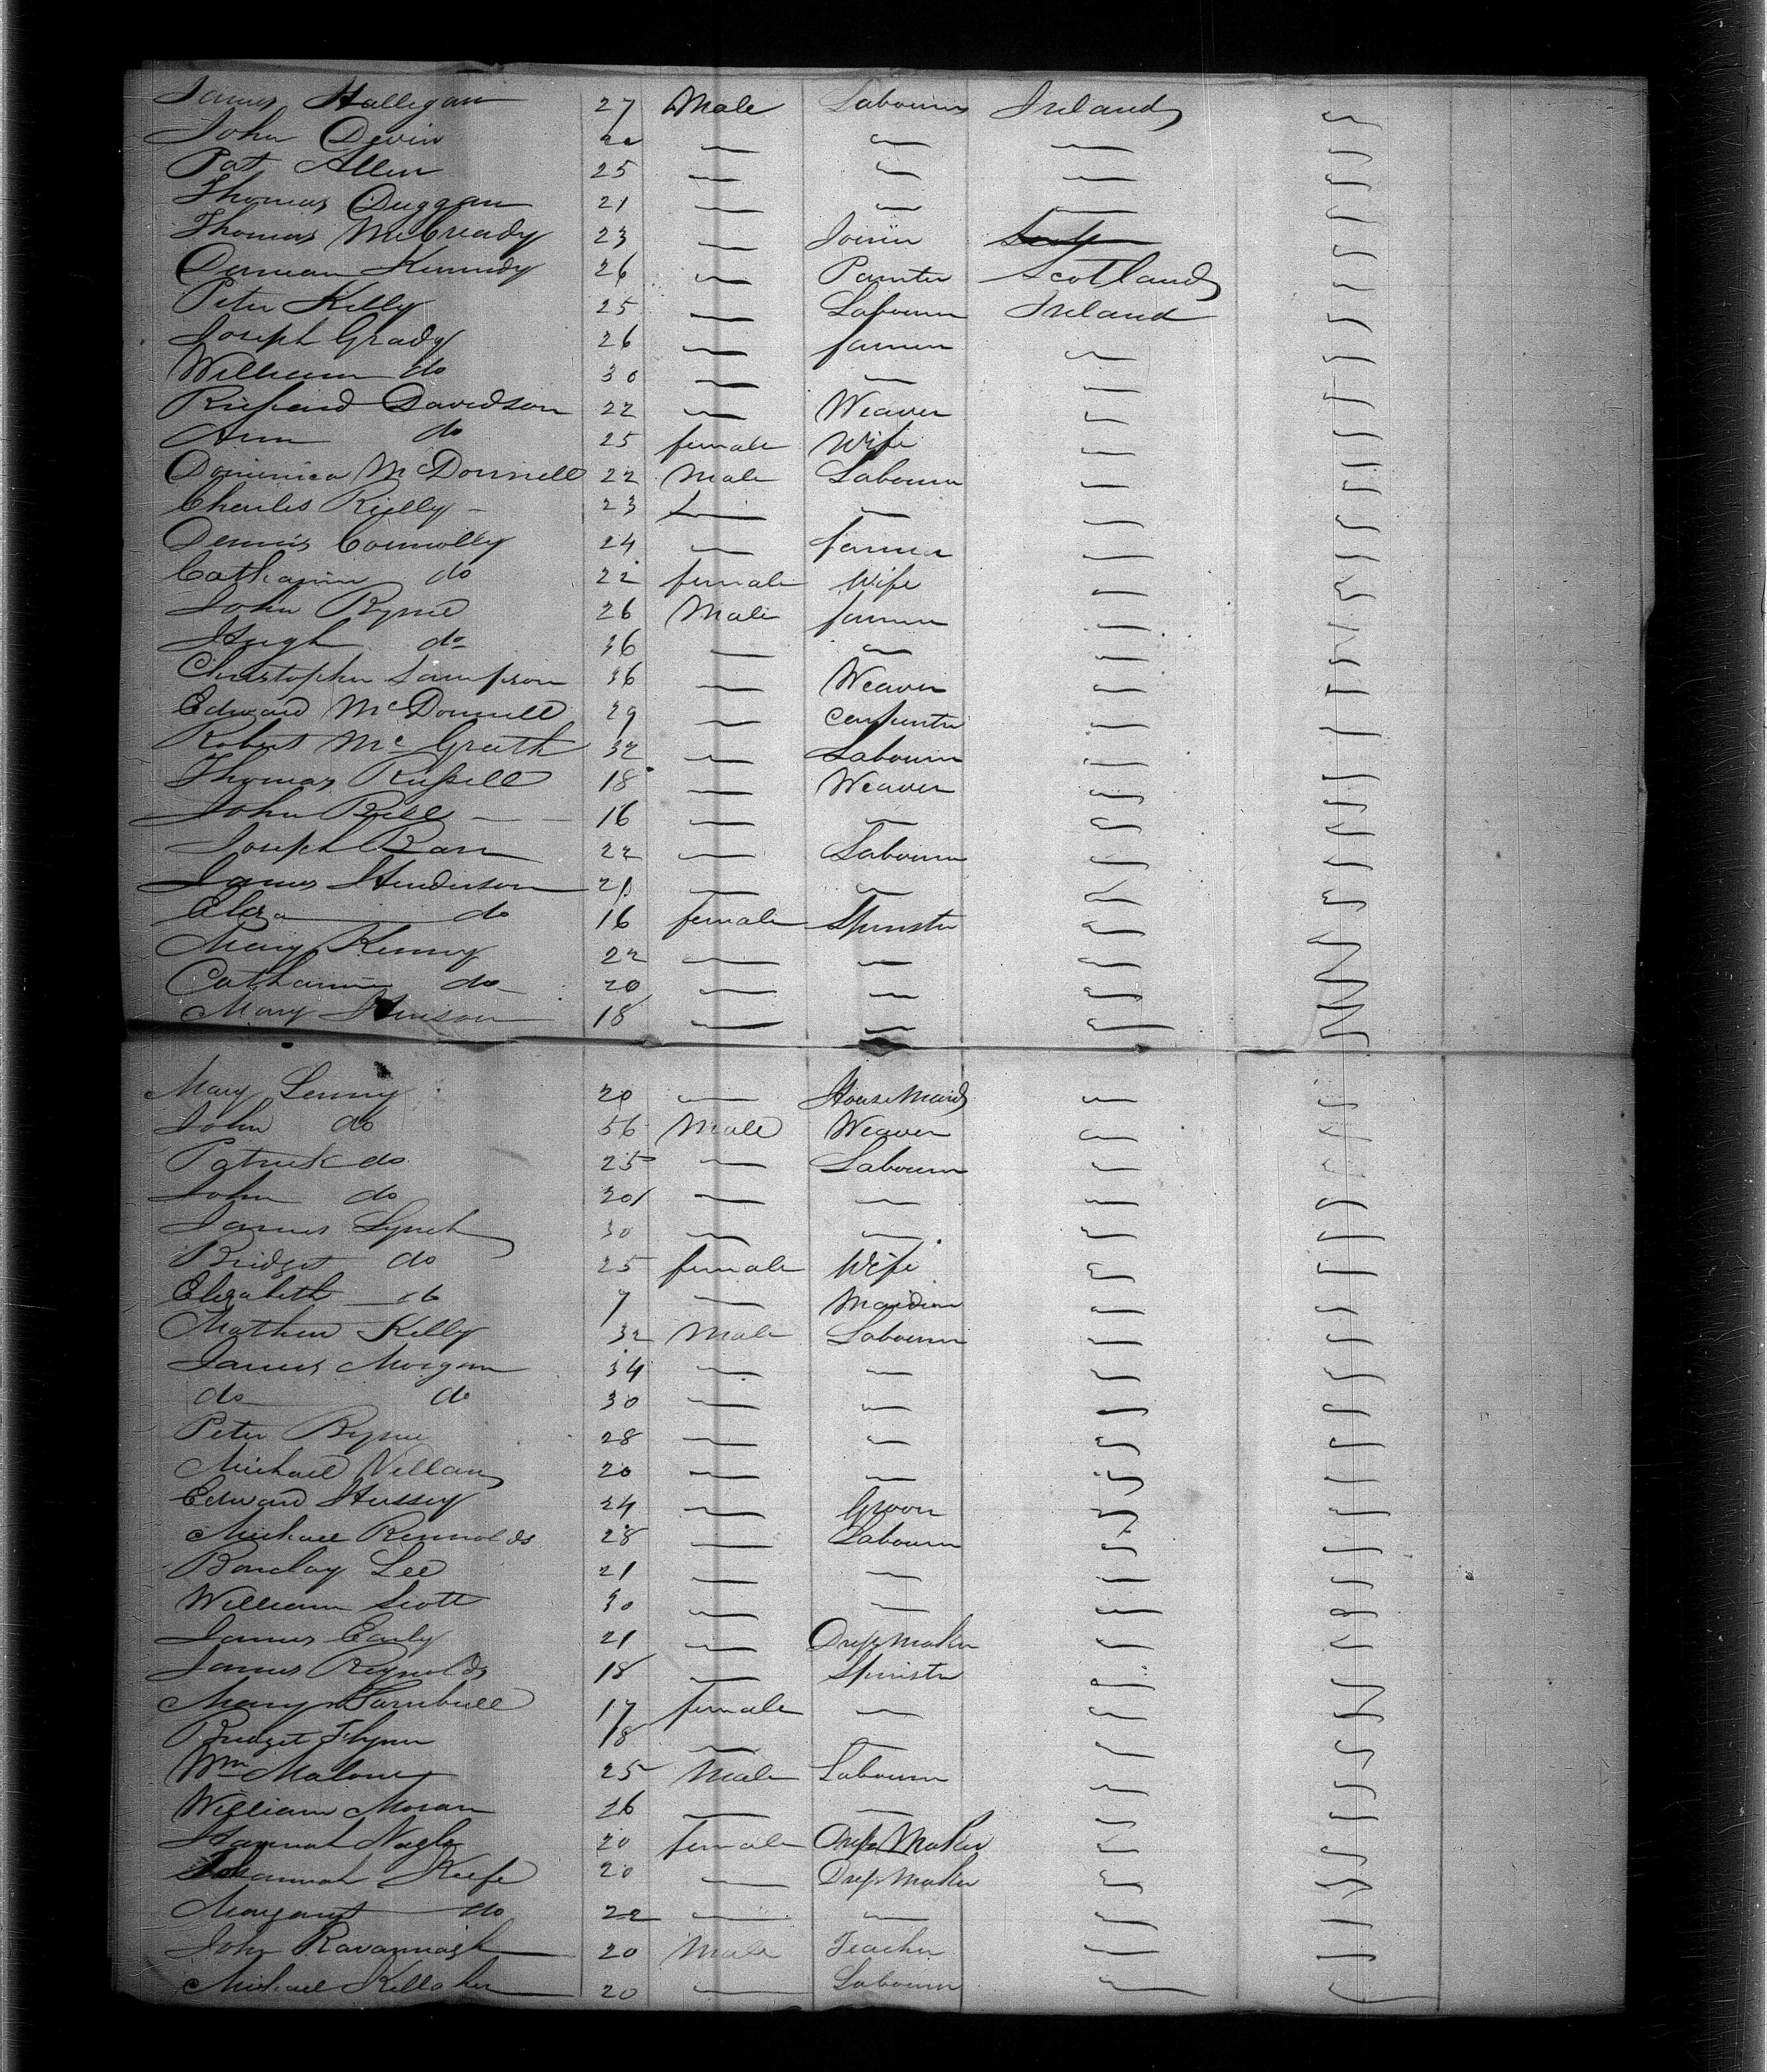 James Halligan 27 Male Labourer Ireland
John Devin 22 — — —
Pat Allen 25 — — —
Thomas Duggan 21 — — —
Thomas McCready 23 — Joiner
Duncan Kennedy 26 — Painter Scotland
Peter Kelly 25 — Labourer Ireland
Joseph Grady 26 — farmer —
William do 30 — — —
Richard Davidson 22 — Weaver —
Ann do 25 female Wife —
Dominica McDonnell 22 Male Labourer —
Charles Rielly 23 — — —
Dennis Connolly 24 — farmer —
Catharine do 22 female Wife —
John Byrne 26 Male farmer —
Hugh do 36 — — —
Christopher Sampson 36 — Weaver —
Edward McDonnell 29 — Carpenter —
Robert McGrath 32 — Labourer —
Thomas Russell 18 — Weaver —
John Bell 16 — — —
Joseph Barr 22 — Labourer —
James Henderson 21 — — —
Eliza do 16 female Spinster —
Mary Kenny 22 — — —
Catharine do 20 — — —
Mary Hinson 18 — — —
Mary Lenny 20 — House Maid —
John do 56 Male Weaver —
Patrick do 25 — Labourer —
John do 20 — — —
James Lynch 30 — — —
Bridget do 25 female Wife —
Elizabeth do 7 — Maiden —
Mathew Kelly 32 Male Labourer —
James Morgan 34 — — —
do do 30 — — —
Peter Byrne 28 — — —
Michael 20 — — —
Edward Hussey 24 — Groom —
Michael Rennolds 28 — Labourer —
Barclay Lee 21 — — —
William Scott 30 — — —
James Early 21 — Dress Maker —
James Reynolds 18 — Spinster —
Mary Turnbull 17 female — —
Bridget Flynn 18 — — —
Wm Malone 25 Male Labourer —
William Moran 26 — — —
Hannah Nagle 20 female Dress Maker —
Johannah Keefe 20 — Dress Maker —
Margaret do 22 — — —
John Kavannagh 20 Male Teacher —
Michael Kellaher 20 — Labourer —